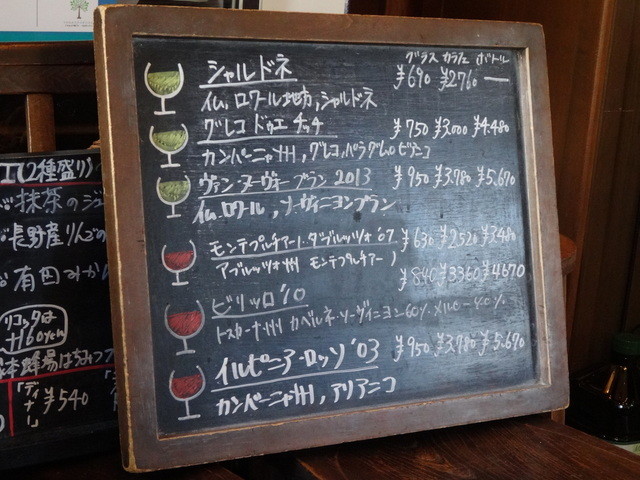 グラス カラフェ ボトル
シャルドネ ¥690 ¥2760 —
仏, ロワール地方, シャルドネ
グレコ ドゥエ チッチ ¥750 ¥3.000 ¥4.480
カンパーニャ州, グレコ,
ヴァン ヌーヴォー ブラン 2013 ¥950 ¥3.780 ¥5.670
仏, ロワール, ソーヴィニヨンブラン
モンテプルチアーノ・ダブルッツォ '07 ¥630 ¥2520 ¥3480
アブルッツォ州 モンテプルチアーノ
ビリッロ '10 ¥840 ¥3360 ¥4670
トスカーナ州 カベルネ・ソーヴィニヨン60% メルロー40%
イルピニア・ロッソ '03 ¥950 ¥3.780 ¥5.670
カンパーニャ州, アリアニコ
(2種盛り)
抹茶の
長野産りんごの
有田みかん
リコッタは
+160yen
蜂場はちみつ
「ディナー」 ¥540